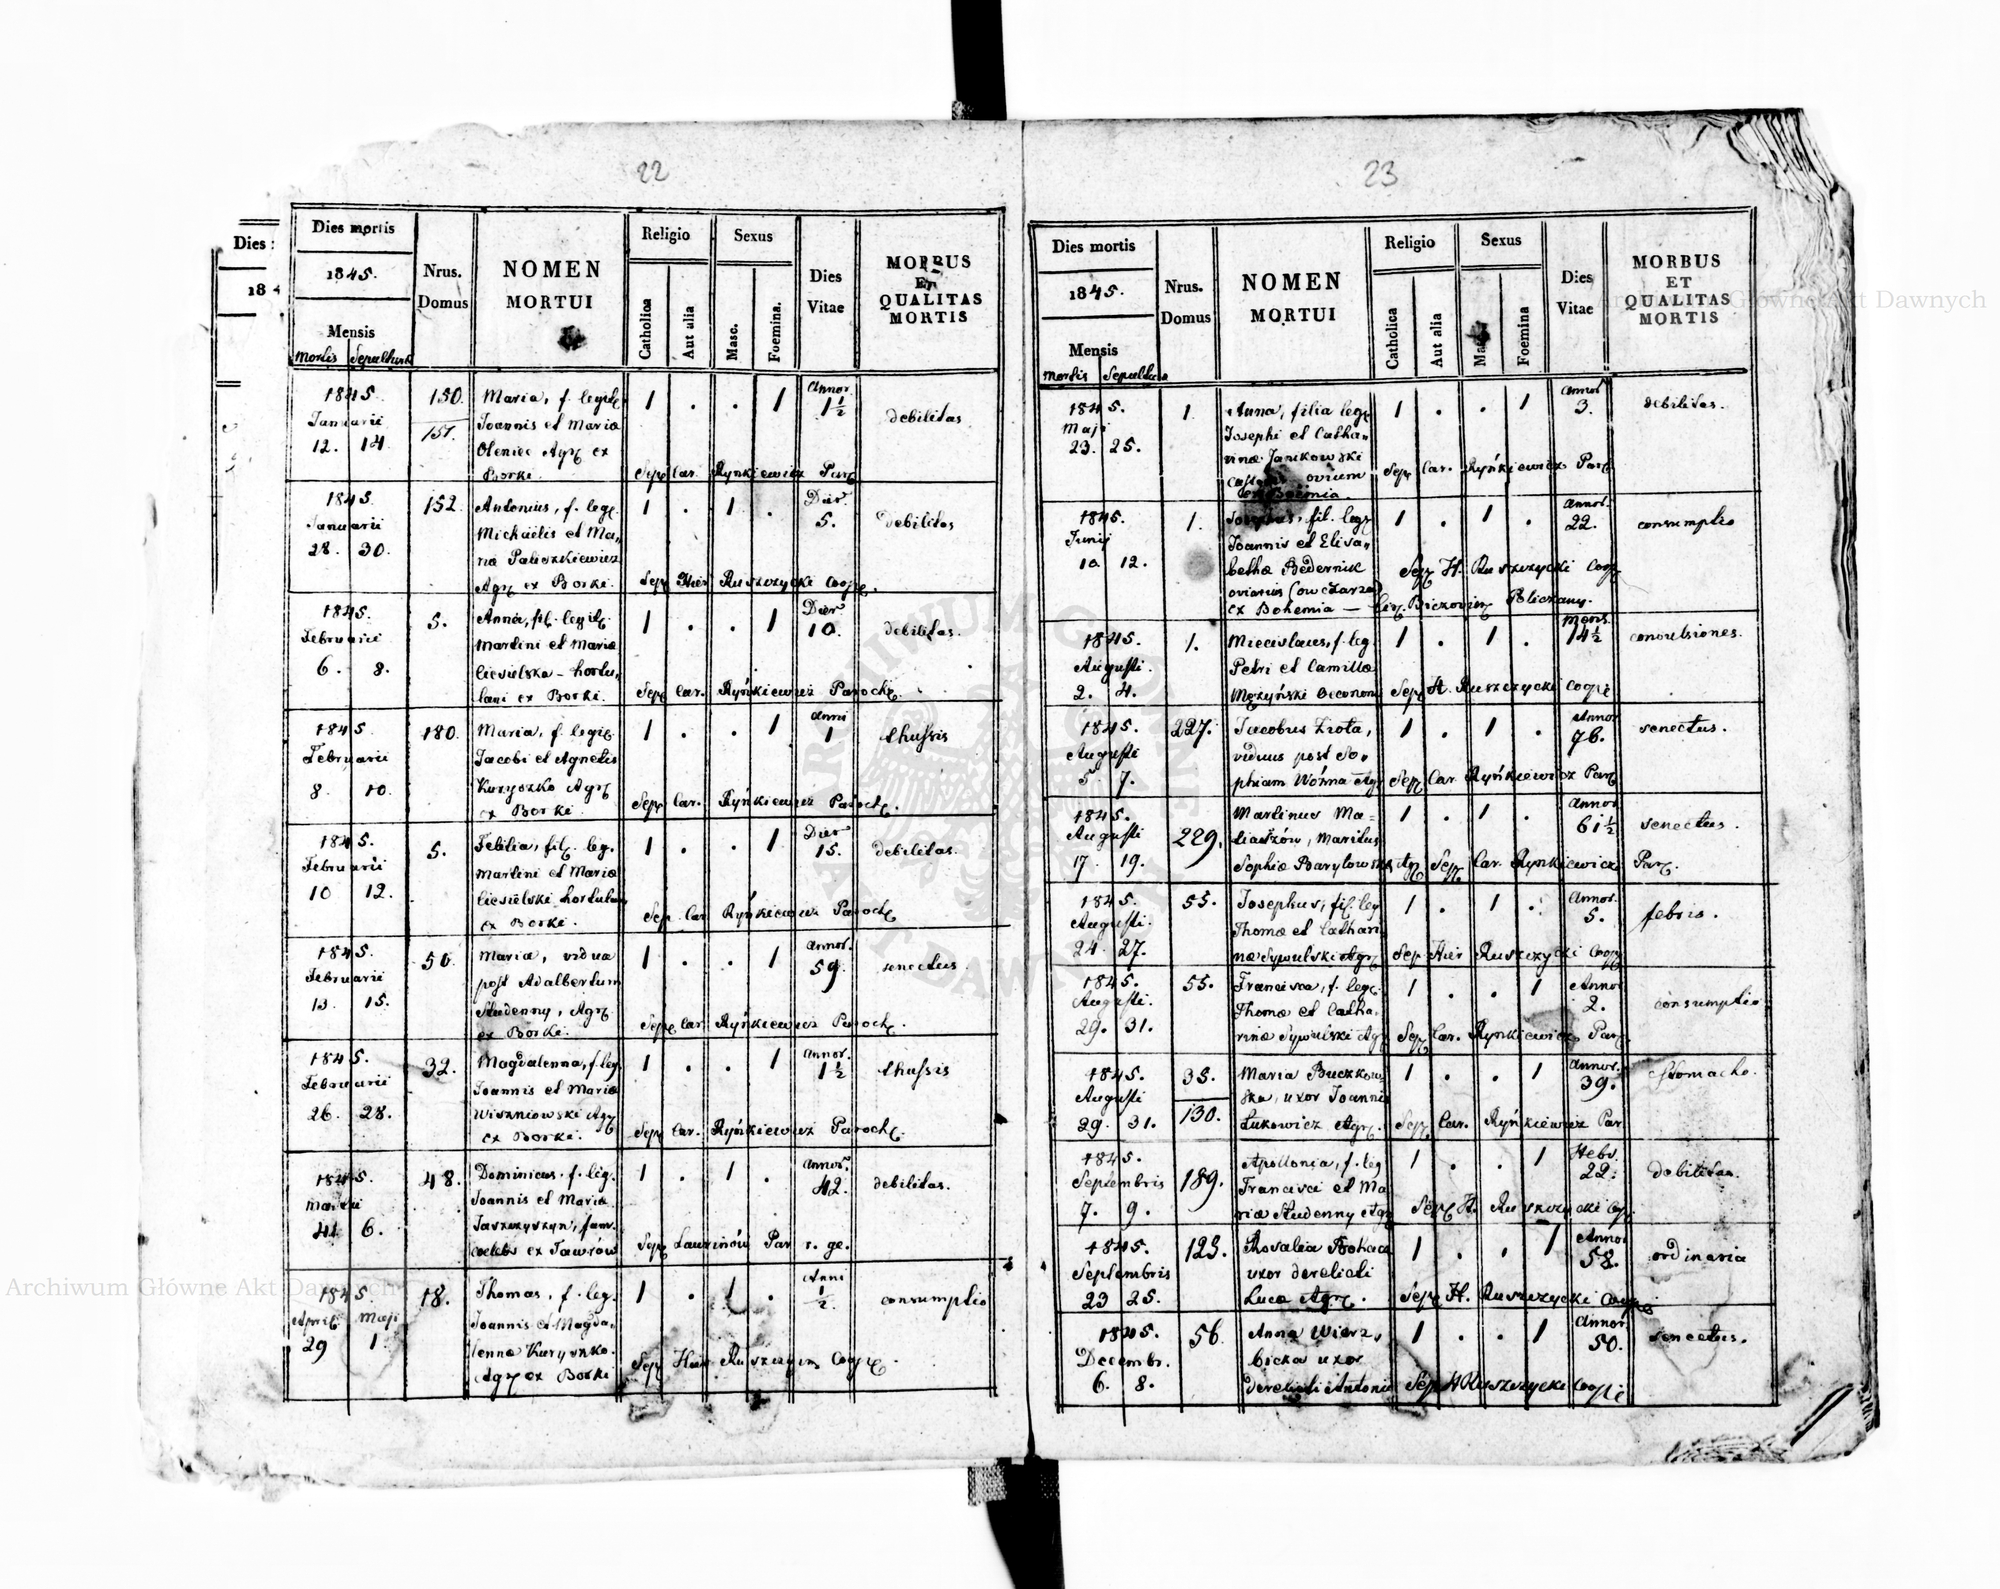 22
Dies mortis
1845.
Mensis
Mortis Sepulturae
Nrus.
Domus
NOMEN
MORTUI
Religio
Catholica
Aut alia
Sexus
Masc.
Foemina.
Dies
Vitae
MORBUS
ET
QUALITAS
MORTIS
1845.
Januarii
12. 14.
150.
151.
Maria, f. legit.
Joannis et Maria
Oleniec Agr. ex
Borki.
1 . . 1
Annor.
1 1/2
debilitas
Sep. Car. Rynkiewicz Par.
1845.
Januarii
28. 30.
152.
Antonius, f. leg.
Michaëlis et Ma,,
riæ Paliszkiewicz
Agr. ex Borki.
1 . 1 .
Dier.
5.
debilitas
Sep. Hier. Ruszczycki Coop.
1845.
Februarii
6. 8.
5.
Anna, fil. legit.
Martini et Mariæ
Ciesielska – hortu,,
lani ex Borki.
1 . . 1
Dier.
10.
debilitas.
Sep. Car. Ryńkiewicz Paroch.
1845
Februarii
8. 10.
180.
Maria, f. legit.
Jacobi et Agnetis
Kuryszko Agr.
ex Borki
1 . . 1
Anni
1
thussis
Sep. Car. Ryńkiewicz Paroch.
1845.
Februarii
10 12.
5.
Febilia, fil. leg.
Martini et Mariæ
Ciesielski hortulan
ex Borki.
1 . . 1
Dier
15.
debilitas.
Sep. Car Ryńkiewicz Paroch.
1845.
Februarii
13. 15.
50.
Maria, vidua
post Adalbertum
Studenny, Agr.
ex Borki.
1 . . 1
Annor.
59.
senectus.
Sep. Car. Ryńkiewicz Paroch.
1845.
Februarii
26. 28.
32.
Magdalenna, f. leg.
Joannis et Mariæ
Wiszniowski Agr.
ex Borki.
1 . . 1
Annor.
1 1/2
thussis
Sep. Car. Ryńkiewicz Paroch.
1845.
Martii
4 6.
48.
Dominicus, f. leg.
Joannis et Maria
Jaszczyszyn, fam.
coelebs ex Jawrów
1 . 1 .
Annor.
42.
debilitas.
Sep. Laurinów Par r. ge.
1845.
April. Maji
29 1.
18.
Thomas, f. leg.
Joannis et Magda,,
lenna Kuryszko.
Agr. ex Borki
1 . 1 .
Anni
1/2.
consumptio
Sep. Hier Coop.
23
Dies mortis
1845.
Mensis
Mortis Sepulturae
Nrus.
Domus
NOMEN
MORTUI
Religio
Catholica
Aut alia
Sexus
Masc.
Foemina
Dies
Vitae
MORBUS
ET
QUALITAS
MORTIS
1845.
Maji
23. 25.
1.
Anna, filia leg.
Josephi et Catha,,
rinæ Janikowski
ovium
Boemia.
1 . . 1
Annor
3.
debilitas.
Sep. Car. Ryńkiewicz Par.
1845.
Junij
10 12.
1.
Josephus, fil. leg.
Joannis et Elisa,,
bethæ Bedernik
oviarius (owczarza)
ex Bohemia –
1 . 1 .
Annor.
22.
consumptio
Sep. H. Ruszczycki Coop.
1845.
Augusti.
2. 4.
1.
Miecislaus, f. leg.
Petri et Camillæ
Mężyński Oeconom
1 . 1 .
Mens.
14 1/2
convulsiones.
Sep. H. Ruszczycki Coop.
1845.
Augusti
5 7.
227.
Jacobus Złota,
viduus post So,,
phiam Woźna Agr.
1 . 1 .
Annor
76.
senectus.
Sep. Car Ryńkiewicz Par.
1845.
Augusti
17. 19.
229.
Martinus Ma-
tiaszów, Maritus
Sophiæ Baryłowska Agr.
1 . 1 .
Annor
61 1/2
senectus.
Sep. Car. Rynkiewicz Par.
1845.
Augusti.
24. 27.
55.
Josephus, fil. leg
Thomæ et Cathari
næ Sywulski Agr.
1 . 1 .
Annor.
5.
febris.
Sep. Hier Ruszczycki Coop.
1845.
Augusti.
29. 31.
55.
Francisca, f. leg.
Thomæ et Catha,,
rinæ Sywulski Agr
1 . . 1
Annor
2.
consumptio
Sep. Car. Rynkiewicz Par.
1845.
Augusti
29. 31.
35.
130.
Maria Buczkow,,
ska, uxor Joannis
Łukowicz Agr.
1 . . 1
Annor.
39.
stomacho.
Sep. Car. Ryńkiewicz Par
1845.
Septembris
7. 9.
189.
Apollonia, f. leg
Francisci et Ma
riæ Studenny Agr
1 . . 1
Hebd.
22.
debilitas.
Sep. H. Ruszczycki Coop.
1845.
Septembris
23 25.
123.
Rosalia
uxor derelicti
Luca Agr.
1 . . 1
Annor
58.
ordinaria
Sep. H. Ruszczycki Coop.
1845.
Decembr.
6. 8.
56.
Anna Wierz,,
bicka uxor
derelicti Antonii
1 . . 1
Annor.
50.
senectus.
Sep. H Ruszczycki Coop.
Dies
184
Archiwum Główne Akt Dawnych
Archiwum Główne Akt Dawnych
ARCHIWUM GŁÓWNE AKT DAWNYCH